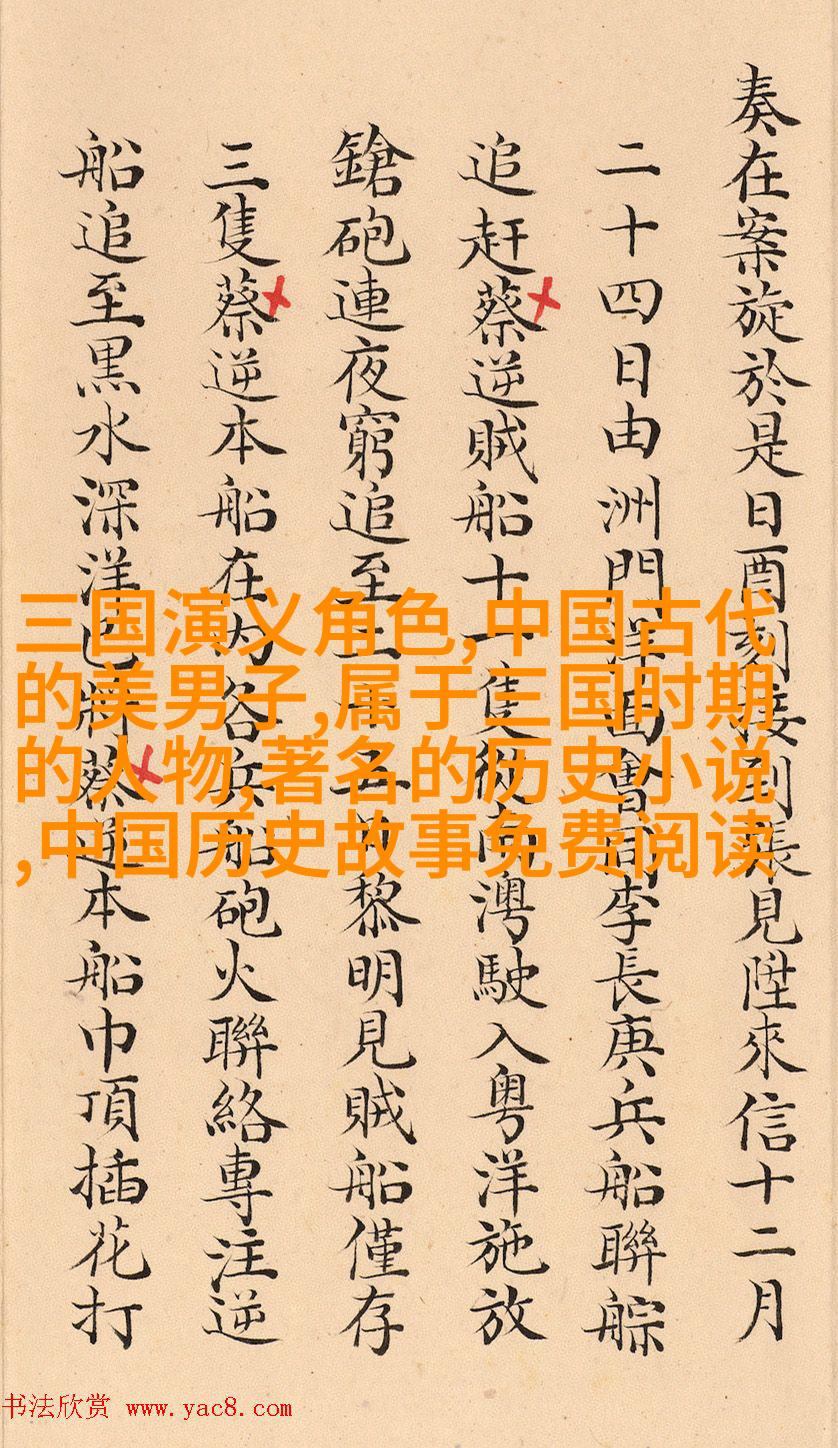 奏在案旋於是日酉刻接到張見陞來信十二月
二十四日由洲門洋面會同李長庚兵船聯䑸
追赶蔡逆賊船十一隻從南澳駛入粵洋施放
鎗砲連夜窮追至二十五日黎明見賊船僅存
三隻蔡逆本船在內各兵船砲火聯絡專注逆
船追至黒水深洋已將蔡逆本船巾頂插花打
三国演义角色,中国古代
的美男子,属于三国时期
的人物,著名的历史小说
,中国历史故事免费阅读
书法欣赏 www.yac8.com